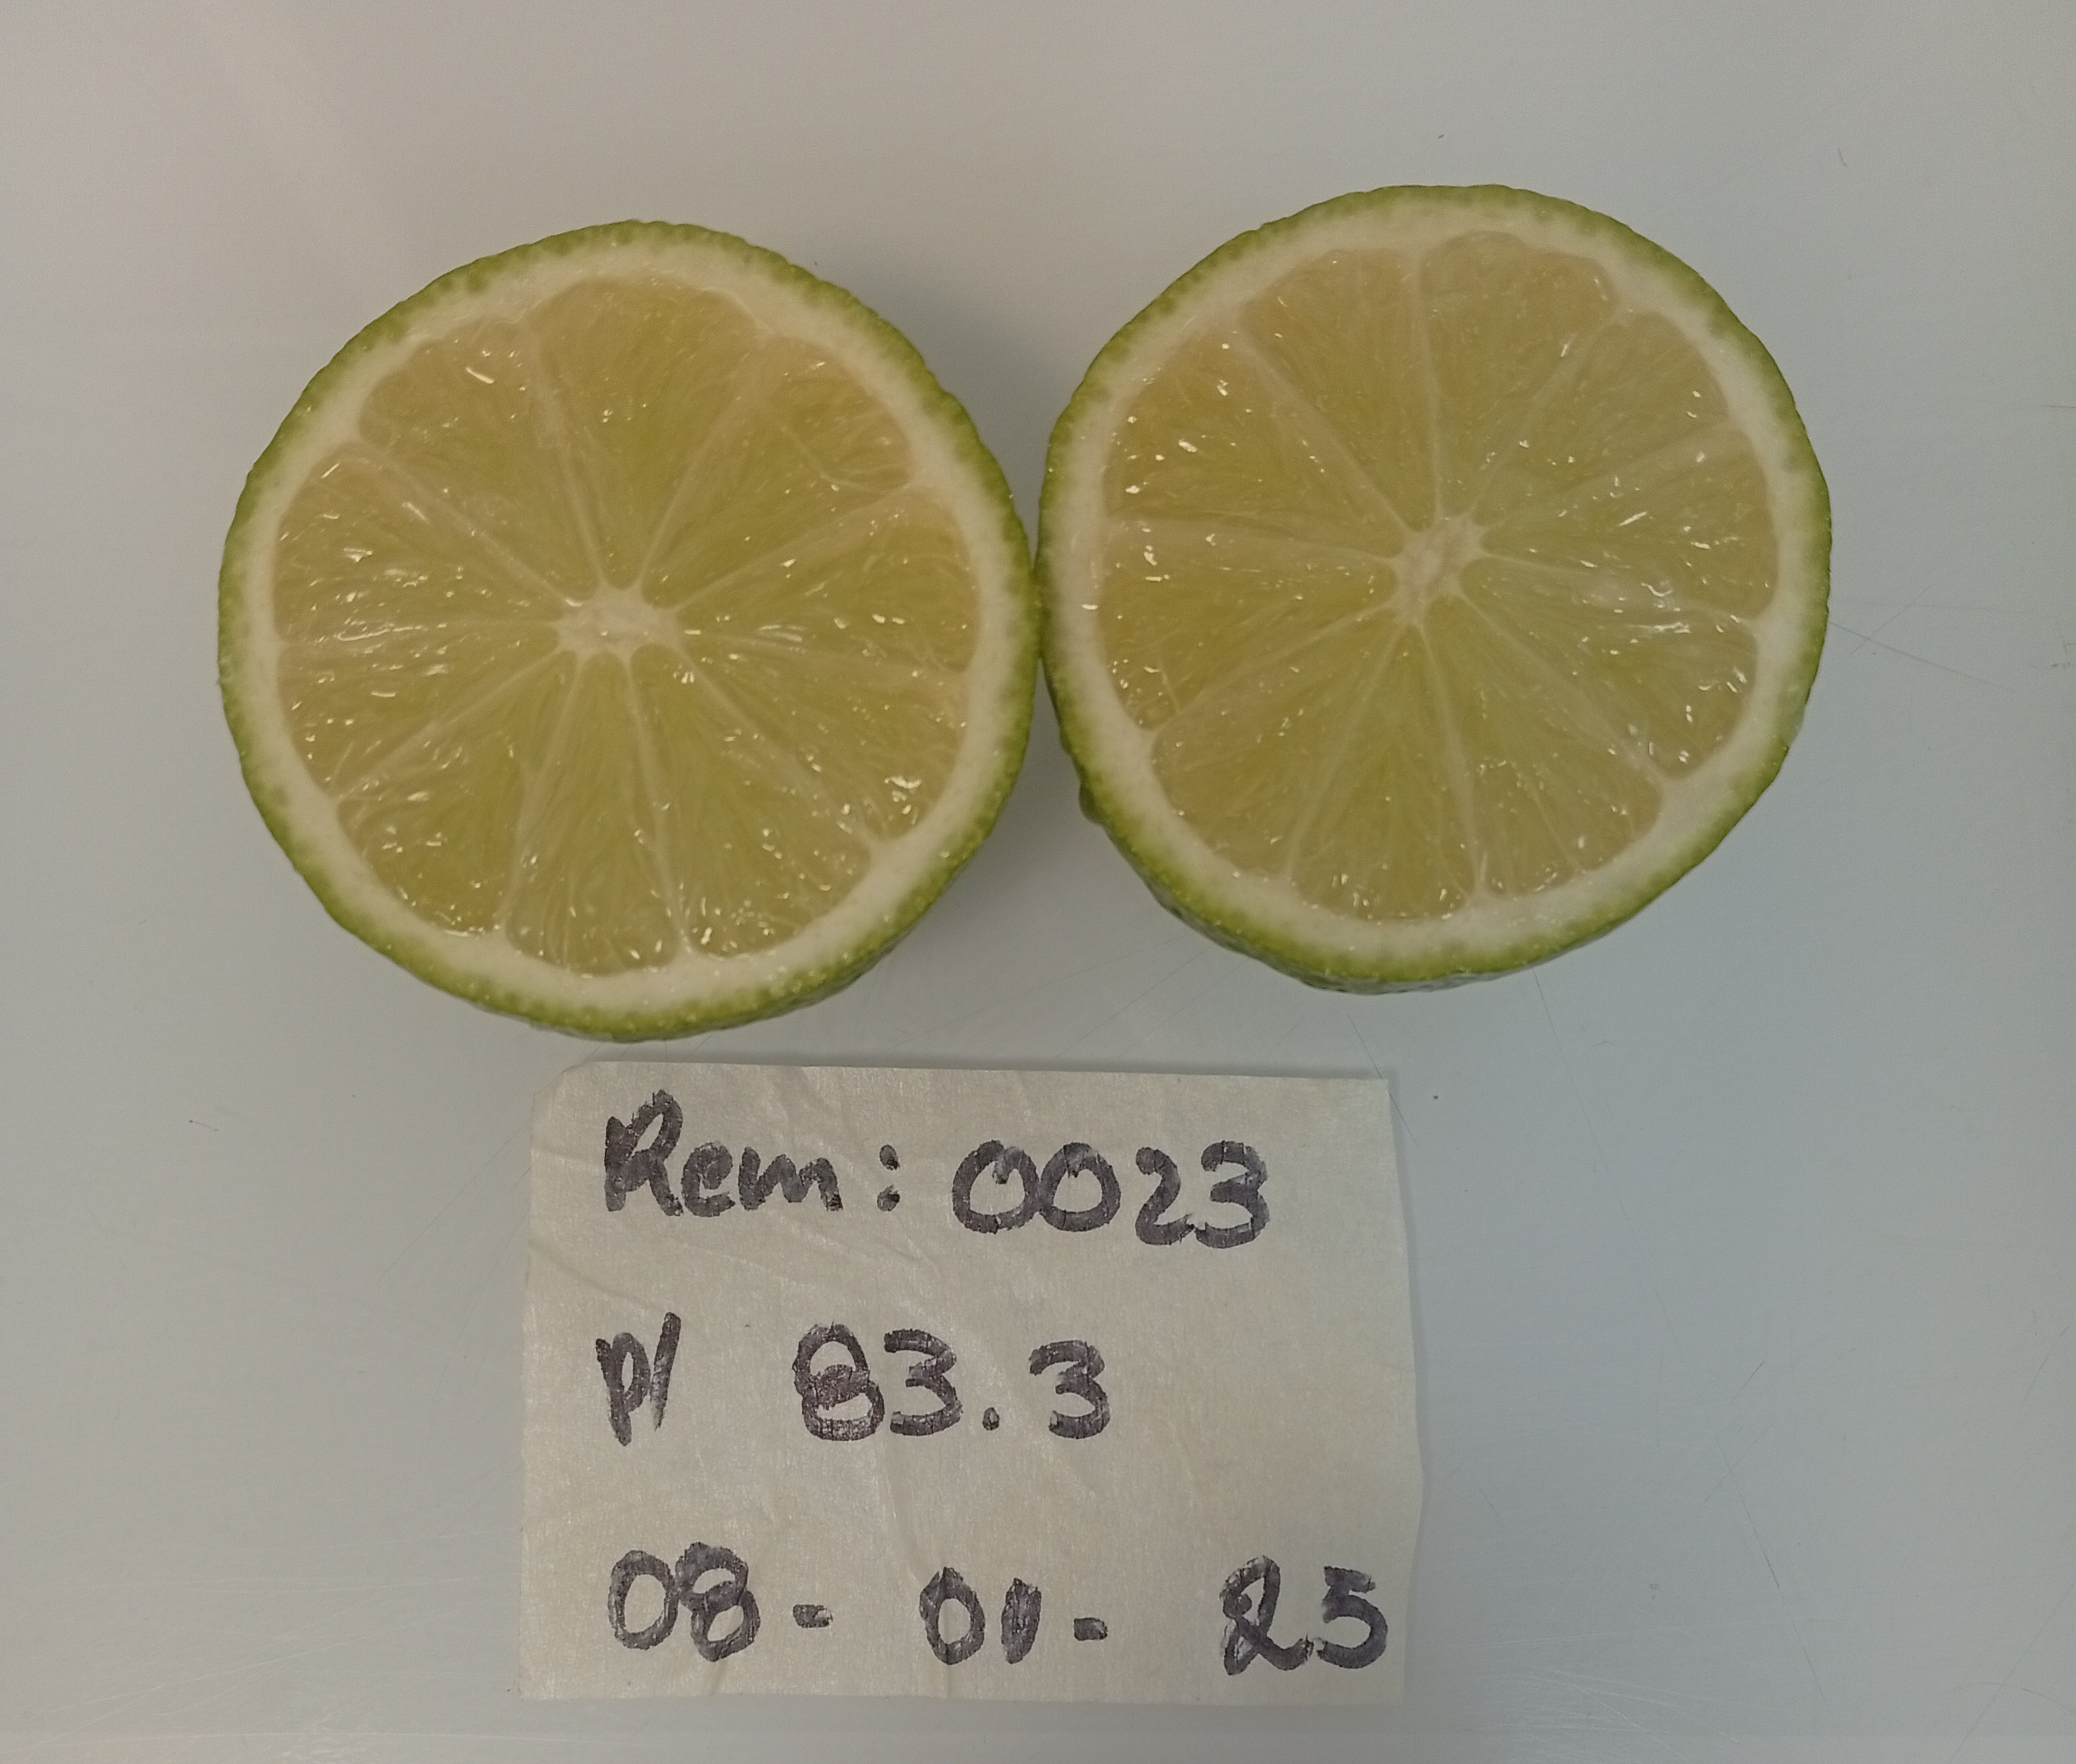 Rem: 0023
p/ 83.3
08- 01- 25